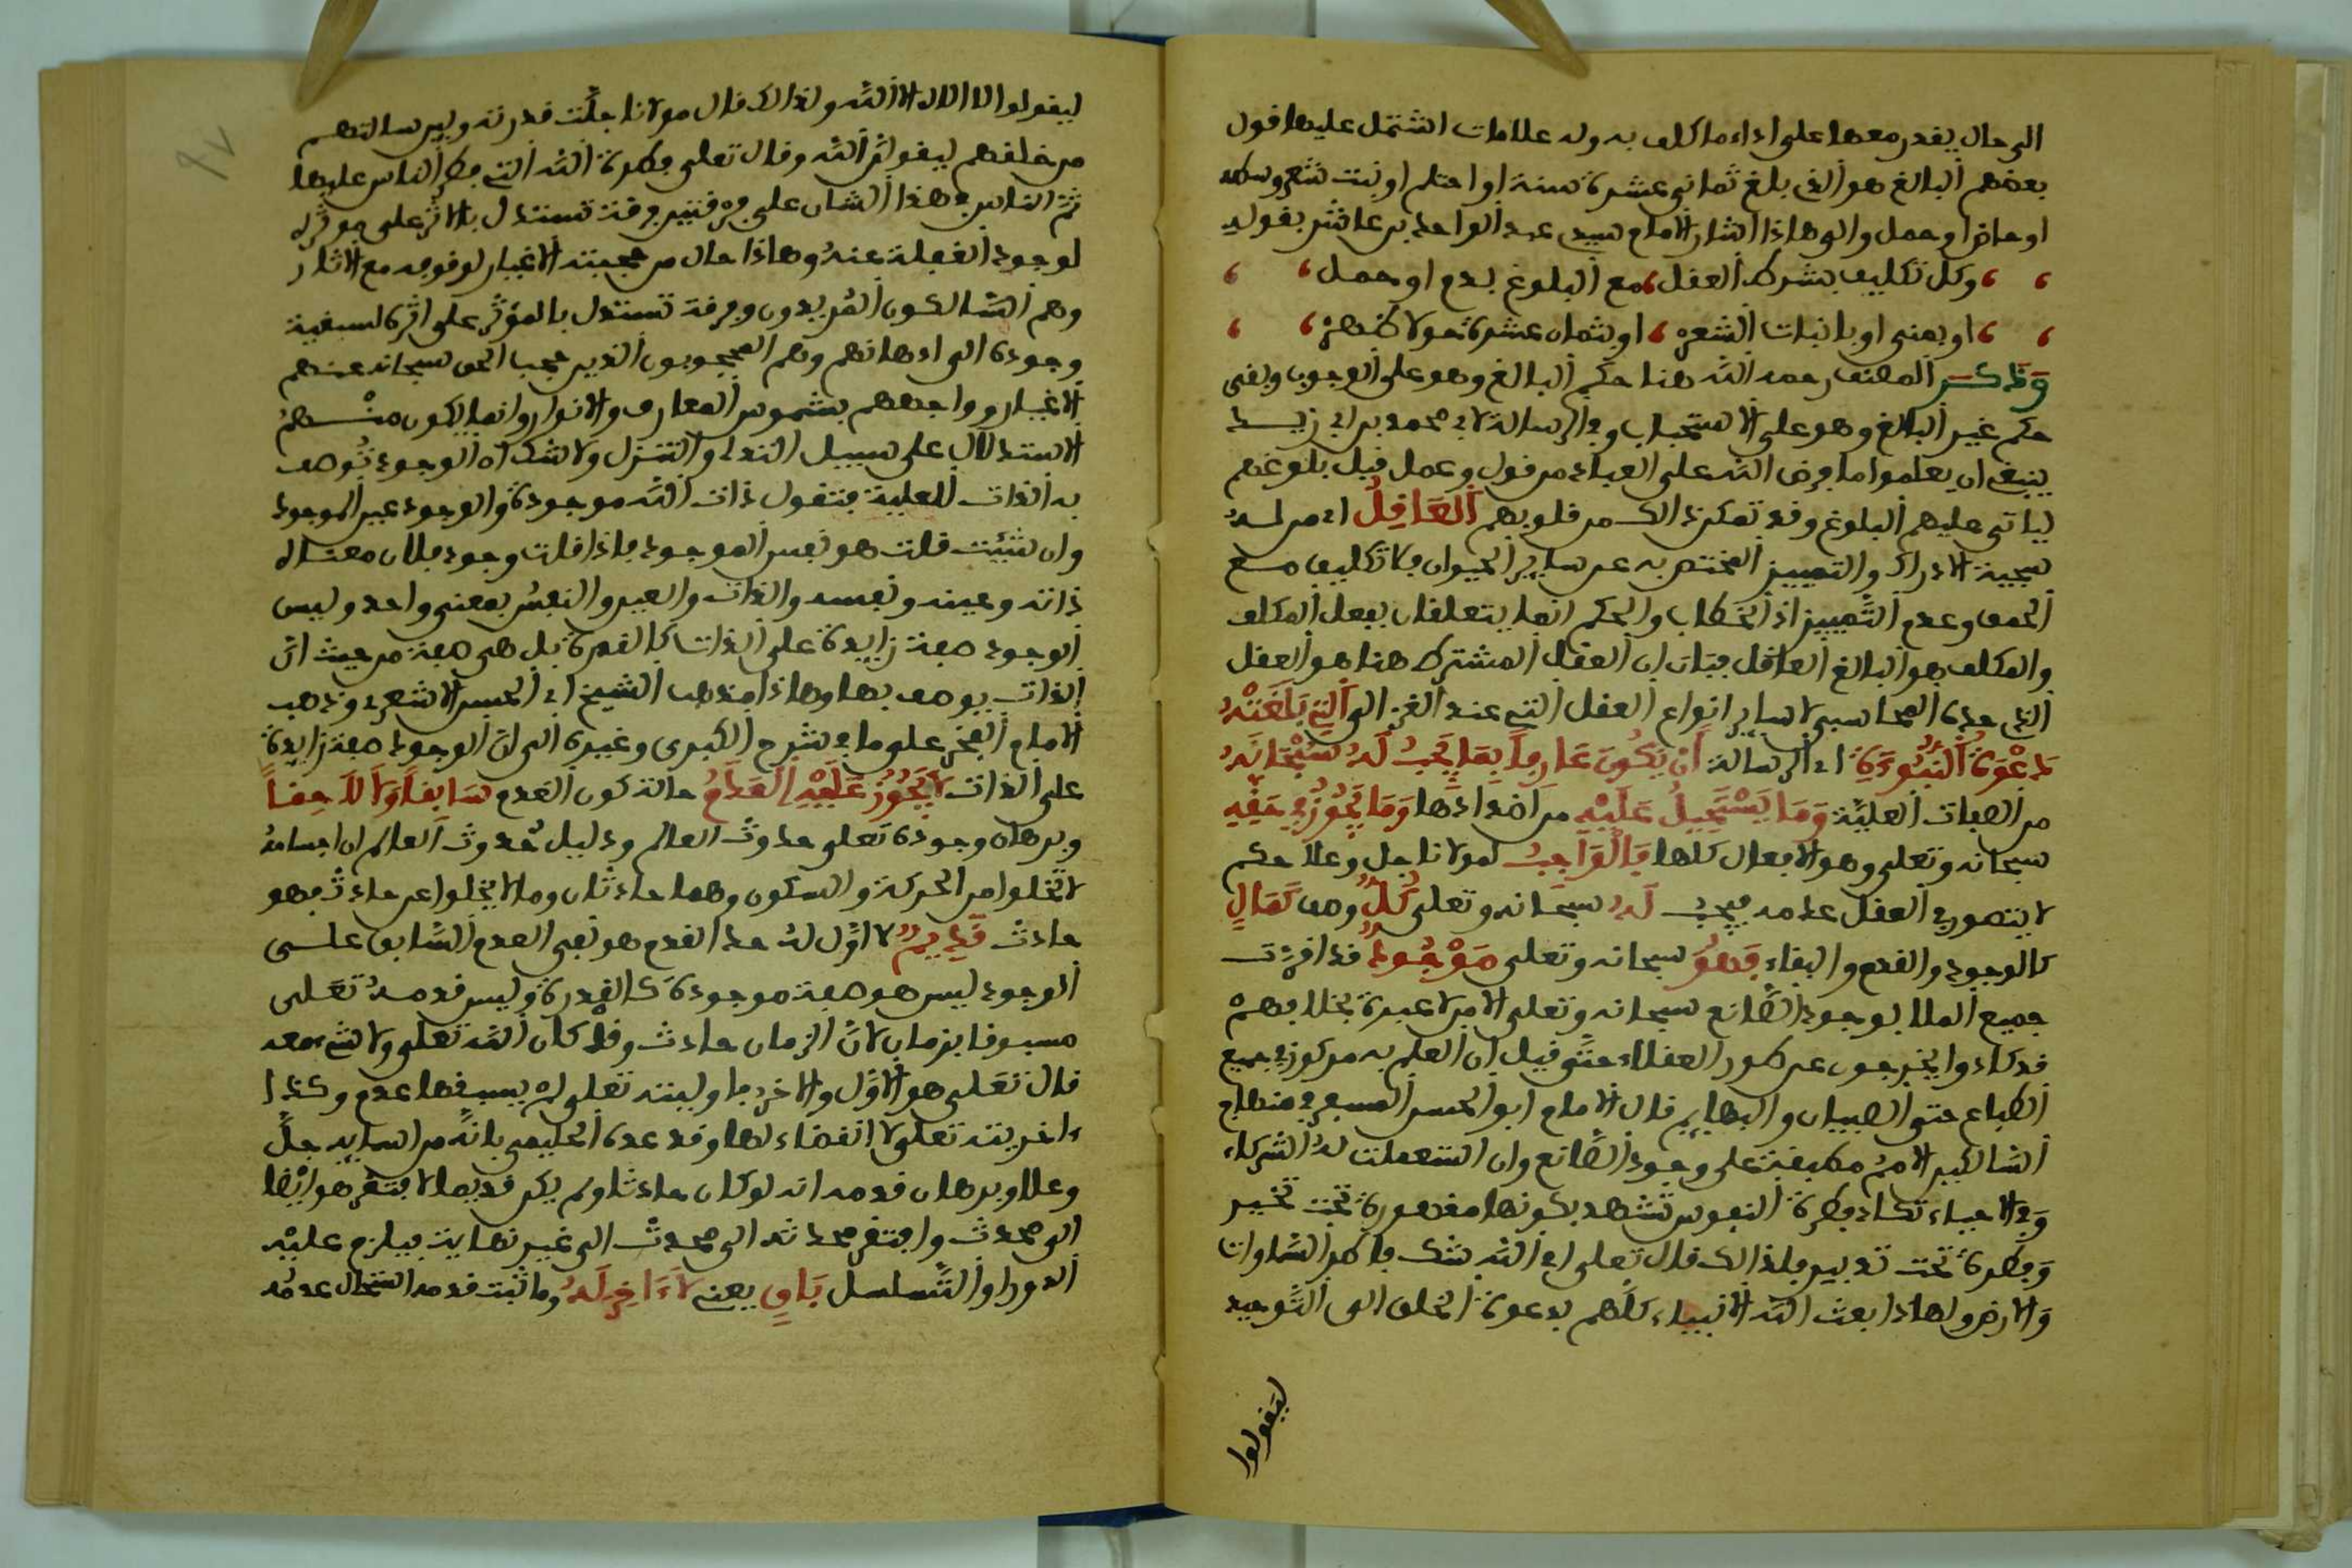 الى حال يقدر معها على اداء ما كلف به وله علامات اشتمل عليها قول
بعضهم البالغ هو الذي بلغ ثماني عشرة سنة او احتلم او نبت شعر وسطه
او حاض او حمل والى هاذا اشار الامام سيدي عبد الواحد بن عاشر بقوله
وكل تكليف بشرط العقل مع البلوغ بدم او حمل
او بمني او بانبات الشعر او بثمان عشرة حولا ظهر
وَذكَر المصنف رحمه الله هنا حكم البالغ وهو على الوجوب وبقى
حكم غير البالغ وهو على الاستحباب وفي الرسالة لابي محمد بن ابي زيد
ينبغي ان يعلموا ما فرض الله على العباد من قول وعمل قبل بلوغهم
لياتي عليهم البلوغ وقد تمكن ذالك من قلوبهم العَاقِلُ اي من له
سجية الادراك والتمييز المختص به عن ساير الحيوان فلا تكليف مع
الحمق وعدم التَّمييز اذ الخطاب والحكم انما يتعلقان بفعل المكلف
والمكلف هو البالغ العاقل فبان ان العقل المشترط هنا هو العقل
الذي حده المحاسبي لا ساير انواع العقل التي عند الغزالي الَّتِي بَلَغَتْهُ
دَعْوَةُ النُّبُوءَةِ اي الرسالة أَنْ يَكُونَ عَارِفاً بِمَا يَجِبُ لَهُ سُبْحَانَهُ
من الصفات العليَّة وَمَا يَسْتَحِيلُ عَلَيْهِ من اضدادها وَمَا يَجُوزُ فِي حَقِّهِ
سبحانه وتعلى وهو الافعال كلها فَالْوَاجِبُ لمولانا جل وعلا حكم
لا يتصور في العقل عدمه فيجب لَهُ سبحانه وتعلى كُلُّ وصف كَمَالٍ
كالوجود والقدم والبقاء فَهُوَ سبحانه وتعلى مَوْجُودٌ قد اقرّت
جميع الملل بوجود الصَّانع سبحانه وتعلى الا من لا عبرة بخلافهمْ
قد كادوا يخرجون عن طور العقلاء حتَّى قيل ان العلم به مركوز في جميع
الطباع حتى الصبيان والبهايم قال الامام ابو الحسن المسفر في منهاج
السَّالكين الامم مطبقة على وجود الصَّانع وان استعملت له الشركاء
وَفي الاحياء تكاد فطرة النفوس تشهد بكونها مقهورة تحت تخيير
وَفطرة تحت تدبير ولذالك قال تعلى ا في الله شك فاطر السَّماوات
وَالارض ولهاذا بعث الله الانبياء كلّهم لدعوة الخلق الى التَّوحيد
ليقولوا
ليقولوا لا اله الا الله ولذالك قال مولانا جلَّت قدرته ولين سالتهم
من خلقهم ليقولن الله وقال تعلى فطرة الله التي فطر الناس عليها
ثم الناس في هذا الشان على فرقتين فرقة تستدل بالاثر على موثره
لوجود الغفلة عنه وهاذا حال من حجبته الاغيار لوقوفه مع الاثار
وهم السَّالكون المريدون وفرقة تستدل بالمؤثر على اثره لسبقية
وجوده الى اذهانهم وهم المحجوبون الذين حجب الحق سبحانه عنهم
الاغيار وواجههم بشموس المعارف والانوار وانما يكون منهم
الاستدلال على سبيل التدلي والتنزل ولا شك ان الوجود تُوصف
به الذات العلية فتقول ذات الله موجودة والوجود عين الموجود
وان شيئت قلت هو نفس الموجود فاذا قلت وجود فلان معناه
ذاته وعينه ونفسه والذات والعين والنفس بمعنى واحد وليس
الوجود صفة زايدة على الذات كالقدرة بل هي صفة من حيث ان
الذات يوصف بها وهاذا مذهب الشيخ ابي الحسن الاشعري وذهب
الامام الفخر على ما في شرح الكبرى وغيره الى ان الوجود صفة زايدة
على الذات لاَ يَجُوزُ عَلَيْهِ الْعَدَمُ حالة كون العدم سَابِقاً وَلاَ لاَحِقاً
وبرهان وجوده تعلى حدوث العالم ودليل حُدوث العالم ان اجسامه
لا تخلوا من الحركة والسكون وهما حادثان وما لا يخلوا عن حادث فهو
حادث قَدِيمٌ لا اوّل له حد القدم هو نفي العدم السَّابق على
الوجود ليس هو صفة موجودة كالقدرة وليس قدمه تعلى
مسبوقا بزمان لانَّ الزمان حادث وقد كان الله تعلى ولا شيء معه
قال تعلى هو الاوَّل والاخر فاوليته تعلى لم يسبقها عدم وكذا
ءاخريته تعلى لا انقضاء لها وقد عده الحليمي بانَّه من اسمايه جلَّ
وعلا وبرهان قدمه انه لو كان حادثا ولم يكن قديما لافتقر هو ايضا
الى محدث وافتقر محدثه الى محدث الى غير نهاية فيلزم عليه
الدور او التَّسلسل بَاقٍ يعني لاَ ءَاخِرَ لَهُ وما ثبت قدمه استحال عدمُه